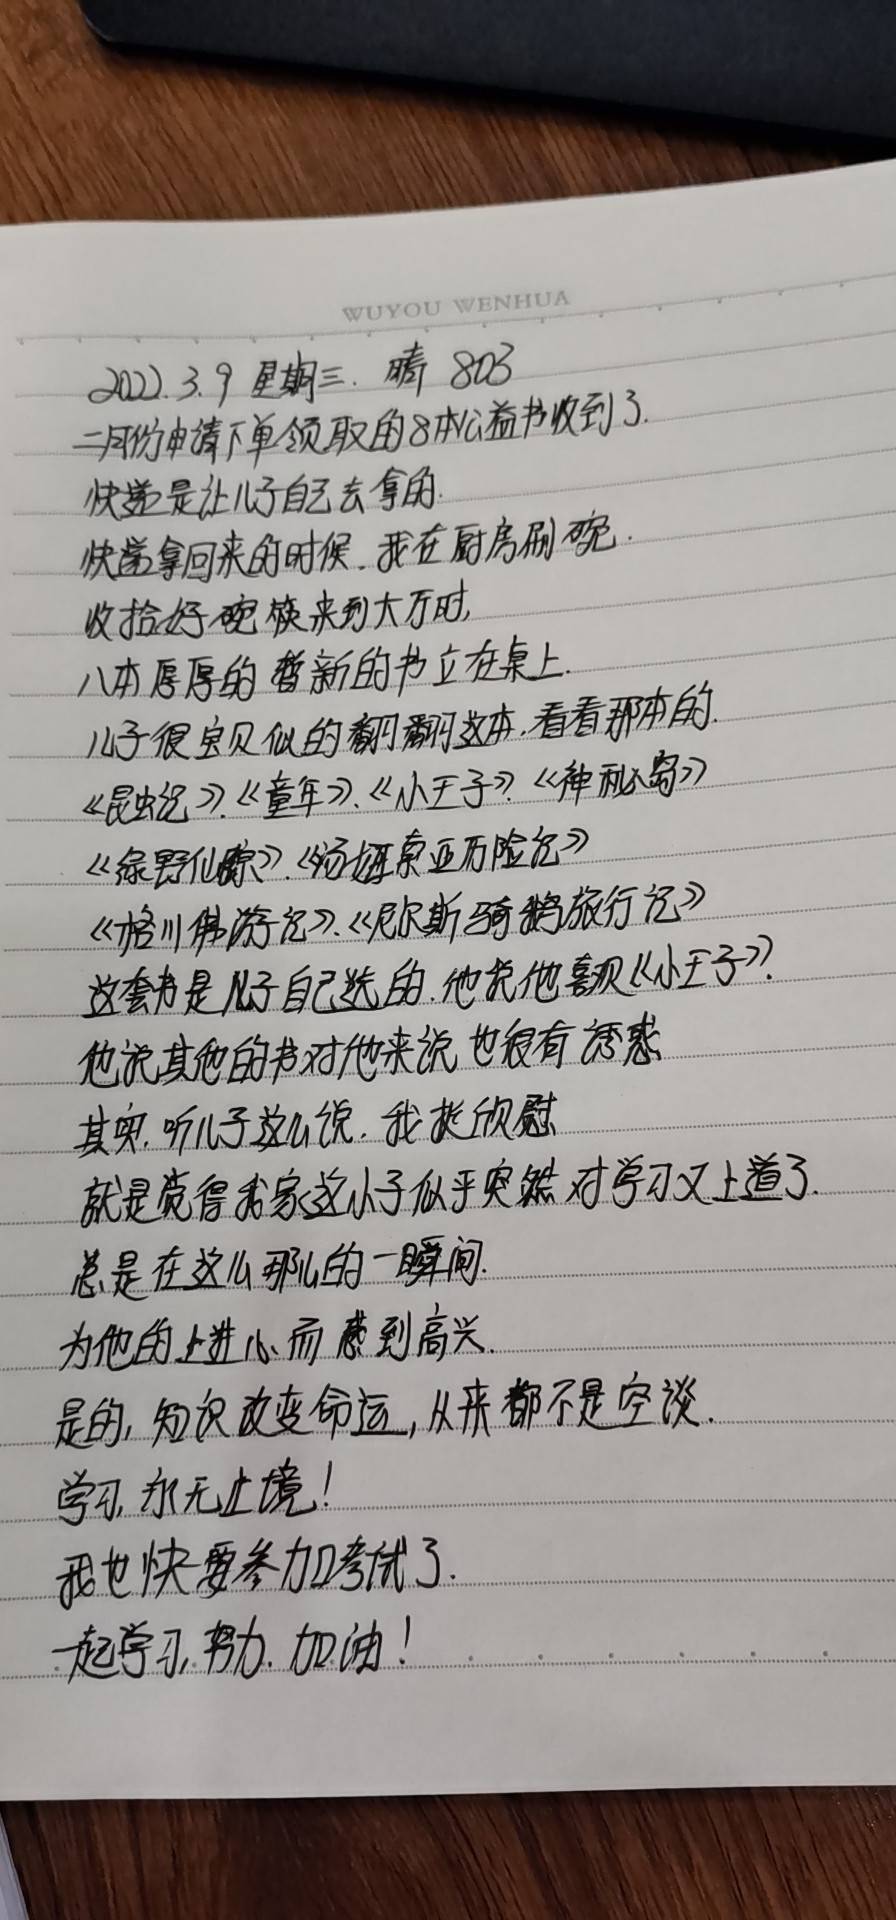 WUYOU WENHUA
2022.3.9 星期三. 晴 803
二月份申请下单领取的8本公益书收到了.
快递是让儿子自己去拿的.
快递拿回来的时候.我在厨房刷碗.
收拾好碗筷来到大厅时,
八本厚厚的 暂新的书立在桌上.
儿子很宝贝似的翻翻这本.看看那本的.
《昆虫记》.《童年》.《小王子》.《神秘岛》
《绿野仙踪》.《汤姆索亚历险记》
《格列佛游记》.《尼尔斯骑鹅旅行记》
这套书是儿子自己选的.他说他喜欢《小王子》.
他说其他的书对他来说也很有诱惑
其实.听儿子这么说.我挺欣慰
就是觉得我家这小子似乎突然对学习又上道了.
总是在这么那么的一瞬间.
为他的上进心而感到高兴.
是的,知识改变命运,从来都不是空谈.
学习,永无止境!
我也快要参加考试了.
一起学习,努力.加油!